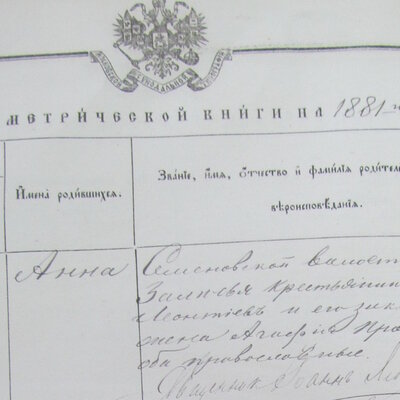 МЕТРИ́ЧЕСКОЙ КНИ́ГИ НА 1881
Имена̀ роди́вшихся.
Зва́нїе, и́мя, о́тчество и фами́лїя родите
вѣроисповѣ́данїя.
Анна
Семеновской волост
Залѣсья крестьянин
Леонтіевъ и его зак
жена Агафія Про
оба православные.